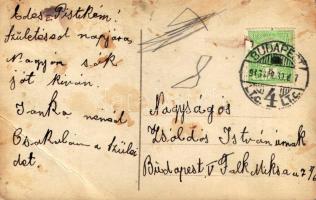 Édes Pistikém!
Születésed napjára
Nagyon sok
jót kiván
Janka nénéd
Csókolom a Szülei
det.
BUDAPEST
4
Nagyságos
Zsoldos Istvánnak
Budapest V Falk Miksa u 7